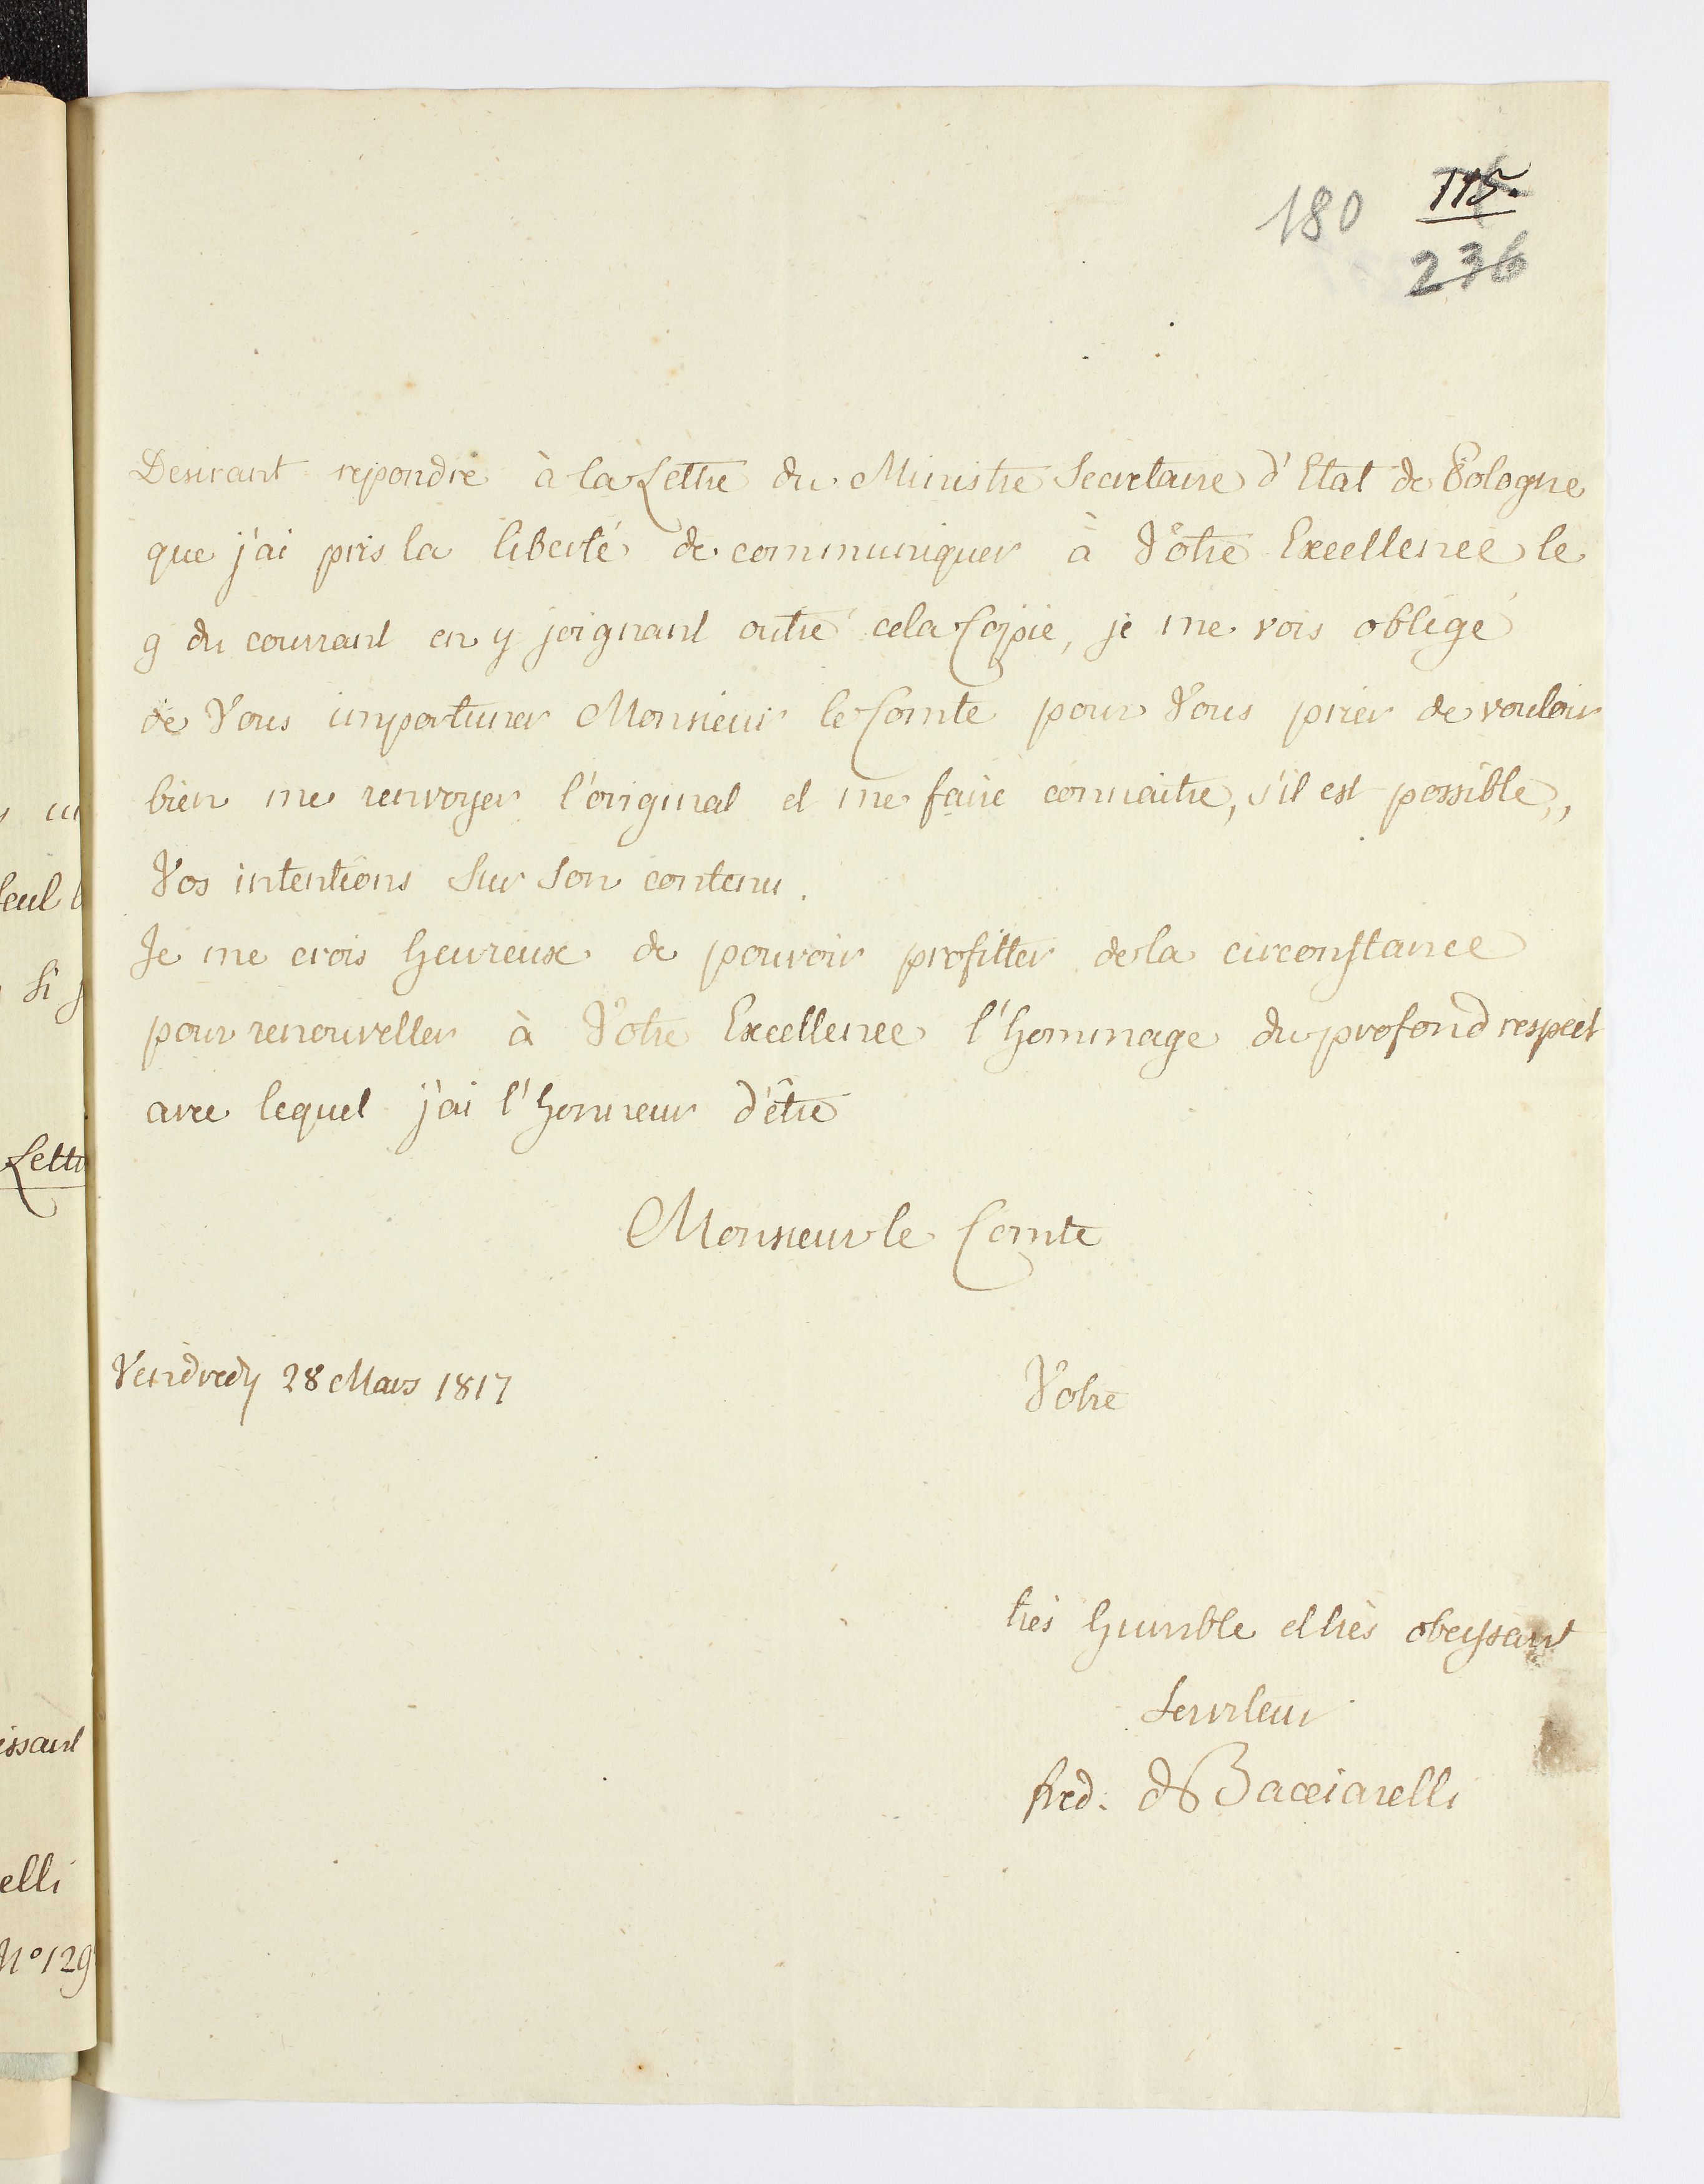 180 115.
236
Desirant repondre à la Lettre du Ministre Secretaire d'Etat de Pologne
que j'ai pris la liberté de communiquer à Vôtre Excellence le
9 du courrant en y joignant outre cela Copie, je me vois obligé
de Vous importuner Monsieur le Comte pour Vous prier de vouloir
bien me renvoyer l'original et me faire connaitre, s'il est possible,
Vos intentions sur son contenu.
Je me crois heureux de pouvoir profitter de la circonstance
pour renouveller à Votre Excellence l'hommage du profond respect
avec lequel j'ai l'honneur d'être
Monsieur le Comte
Vendredy 28 Mars 1817
Votre
très humble et très obeyssant
Serviteur
fred. de Bacciarelli
eul
si
Lett
issant
elli
N° 129